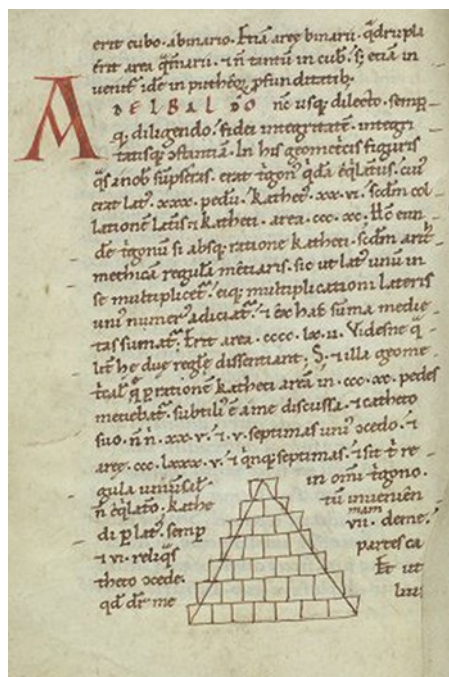 erit cubo · abinario. Etiā areę binarii · q̄drupla
erit area q̄rnarii · ⁊ n̄ tantū in cub̄ · s; etiā in
uenit̄ idē in ꝓfunditatib;
ADELBALDO nc̄ usq; dilecto · semp̄
q; diligendo · fidei integritatē · integri
tatisq; ꝯstantiā. In his geometricis figuris
q̄s anob̄ sūpseras · erat t̄gonꝰ q̄da ęq̄latus · cuiꝰ
erat latꝰ · xxx · pedū · kathetꝰ · xx · vi · scdm̄ col
lationē lateris ⁊ katheti · area · ccc · xc · Hc̄ eun
dē t̄gonū si absq; ratione katheti · scdm̄ arit
methicā regulā mētiaris · sic ut latꝰ unū in
se multiplicet̄ · eiq; multiplicationi lateris
uniꝰ numerꝰ adiciat̄ · ⁊ ex hac sūma medie
tas sumat̄ · Erit area · cccc · lx · v · Videsne q̄
lit̄ hę duę regulę dissentiant · S; ⁊ illa geome
t̄cal q̄ ꝑ rationē katheti areā in · ccc · xc · pedes
metiebat̄ · subtiliꝰ ē ame discussa · ⁊ catheto
suo · n̄ n̄ · xx · v · ⁊ · v · septimas uniꝰ ꝯcedo · ⁊
areę · ccc · lxxx · v · ⁊ q̄nq; septimas · ⁊ sit t̄ re
gula uniūsal̄ in om̄i t̄gono ·
n̄ ęq̄lato · kathe tū inueniēn
di ꝑ latꝰ · semp̄ vii · mam deme ·
⁊ vi · reliq̄s partes ca
theto ꝯcede. Et ut
qd̄ dr̄ me